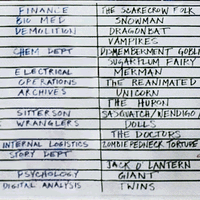 FINANCE THE SCARECROW FOLK
BIO MED SNOWMAN
DEMOLITION DRAGONBAT
VAMPIRES
CHEM DEPT DISMEMBERMENT GOBLI
SUGARPLUM FAIRY
ELECTRICAL MERMAN
OPERATIONS THE REANIMATED
ARCHIVES UNICORN
THE HURON
SITTERSON SASQUATCH/WENDIGO/
WRANGLERS DOLLS
THE DOCTORS
INTERNAL LOGISTICS ZOMBIE REDNECK TORTURE
STORY DEPT
JACK O' LANTERN
PSYCHOLOGY GIANT
DIGITAL ANALYSIS TWINS